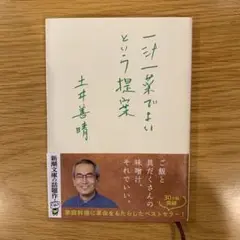 一汁一菜でよい
という提案
土井善晴
ご飯と
具だくさんの
味噌汁。
それでいい。
新潮文庫の話題作
家庭料理に革命をもたらしたベストセラー!